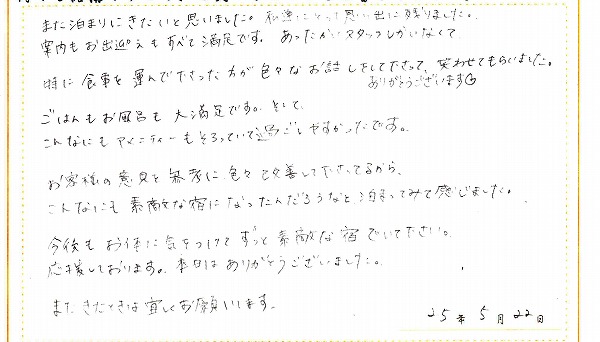 また泊まりにきたいと思いました。私達にとって思い出に残りました。
案内もお出迎えもすべて満足です。あったかいスタッフしかいなくて
特に食事を運んで下さった方が色々なお話しをして下さって、笑わせてもらいました。
ありがとうございます
ごはんもお風呂も大満足です。そして、
こんなにもアメニティーもそろっていて過ごしやすかったです。
お客様の意見を参考に色々改善して下さってるから、
こんなにも素敵な宿になったんだろうなと泊まってみて感じました。
今後もお体に気をつけてずっと素敵な宿でいて下さい。
応援しております。本日はありがとうございました。
またきたときは宜しくお願いします。
25年5月22日